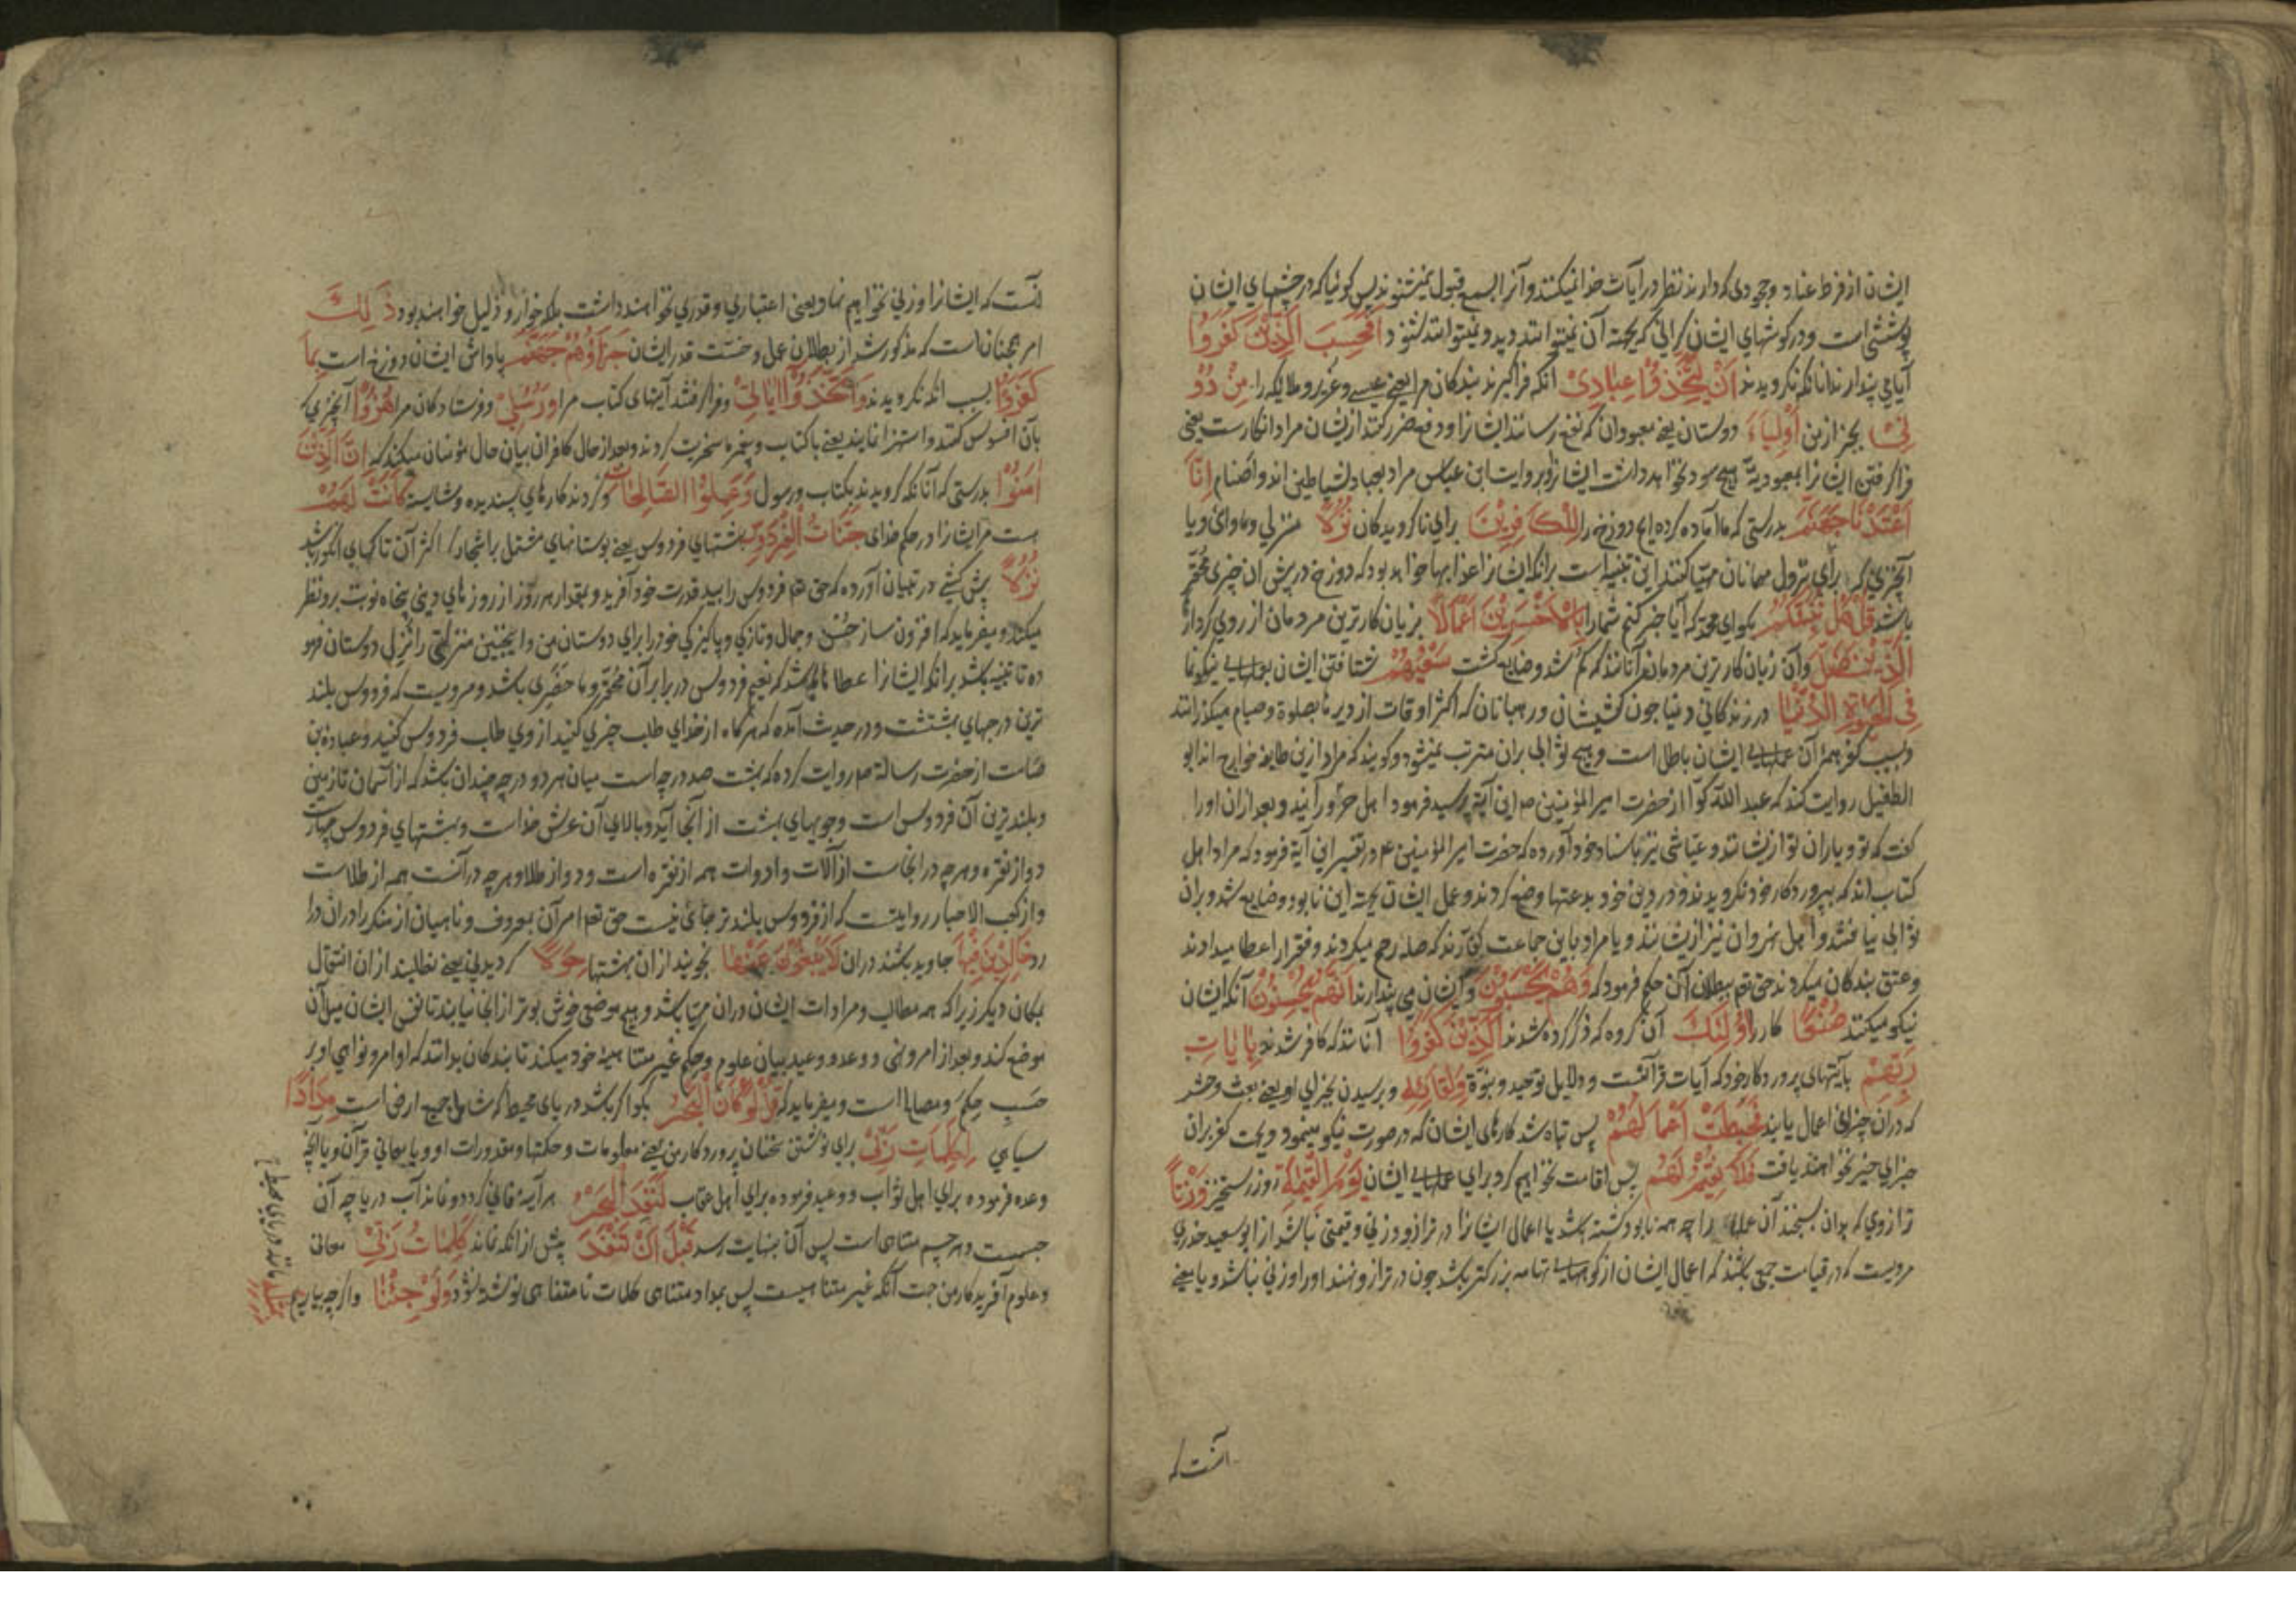 ایشان از فرط عناد و جحودی که دارند نظر در آیات خدا نمیکنند و آنرا بسمع قبول نمیشنوند پس کوئیا که در چشمهای ایشان
پوششی است و در کوشهای ایشان کرانی که بجهة آن نمیتوانند دید و نمیتوانند شنود اَفَحَسِبَ الَّذِینَ کَفَرُوا
آیا می پندارند آنانکه نکرویدند اَنْ یَتَّخِذُوا عِبَادِی آنکه فراکیرند بندکان مرا یعنی عیسی و عزیر و ملایکه را مِنْ دُو
نِی بجز از من اَوْلِیَاءَ دوستان یعنی معبودان که نفع رسانند ایشانرا و دفع ضرر کنند از ایشان مراد انکارست یعنی
فراکرفتن ایشانرا بمعبودیة هیچ سود نخواهد داشت ایشانرا و بروایت ابن عباس مراد بعباد شیاطین اند و اصنام اِنَّا
اَعْتَدْنَا جَهَنَّمَ بدرستی که ما آماده کرده ایم دوزخ را لِلْکَافِرِینَ برای ناکرویدکان نُزُلًا منزلی و ماوائی و یا
آنچیزی که برای نزول مهمانان مهیّا کنند این تنبیه است برآنکه ایشانرا عذابها خواهد بود که دوزخ در پیش آن چیزی محقّر
باشد قُلْ هَلْ نُنَبِّئُکُمْ بکو ای محمّد که آیا خبر کنم شما را بِالْاَخْسَرِینَ اَعْمَالًا بزیان کارترین مردمان از روی کردار
اَلَّذِینَ ضَلَّ وآن زیان کارترین مردمان آنانند که کم شد و ضایع کشت سَعْیُهُمْ شتافتن ایشان بعملهای نیکونما
فِی الْحَیٰوةِ الدُّنْیَا در زندکانی دنیا چون کشیشان و رهبانان که اکثر اوقات از دیرها بصلوة و صیام میکذرانند
و بسبب کفر همۀ آن عملهای ایشان باطل است و هیچ ثوابی بران مترتب نمیشود و کویند که مراد ازین طایفه خوارج اند ابو
الطفیل روایت کند که عبد الله کوّا از حضرت امیر المؤمنین ع م این آیة پرسید فرمود اهل حرورا اند و بعد ازان او را
کفت که تو و یاران تو از ایشانند و عیّاشی نیز باسناد خود آورده که حضرت امیر المؤمنین ع م در تفسیر این آیة فرمود که مراد اهل
کتاب اند که بپروردکار خود نکرویدند و در دین خود بدعتها وضع کردند و عمل ایشان بجهة این نابود و ضایع شد و بران
ثوابی نیافتند و اهل نهروان نیز از ایشانند و یا مراد باین جماعت کفّارند که صله رحم میکردند و فقرا را عطا میدادند
و عتق بندکان میکردند حق تع ببطلان آن حکم فرمود که وَهُمْ یَحْسَبُونَ و ایشان می پندارند اَنَّهُمْ یُحْسِنُونَ آنکه ایشان
نیکو میکنند صُنْعًا کار را اُولٰئِکَ آن کروه که ذکر کرده شدند الَّذِینَ کَفَرُوا آنانند که کافر شدند بِاٰیَاتِ
رَبِّهِمْ بآیتهای پروردکار خود که آیات قرآنست و دلایل توحید و نبوّة وَلِقَائِهِ و برسیدن بجزای او یعنی بعث و حشر
که دران جزای اعمال یابند فَحَبِطَتْ اَعْمَالُهُمْ پس تباه شد کارهای ایشان که در صورت نیکو مینمود و بجهت کفر بران
جزای خیر نخواهند یافت فَلَا نُقِیمُ لَهُمْ پس اقامت نخواهیم کرد برای عملهای ایشان یَوْمَ الْقِیٰمَةِ روز رستخیز وَزْنًا
ترازوی که بدان بسنجند آن عملها را چه همه نابود کشته باشد یا اعمال ایشانرا در ترازو وزنی و قیمتی نباشد از ابو سعید خدری
مرویست که در قیامت جمعی باشند که اعمال ایشان از کوههای تهامه بزرکتر باشد چون در ترازو نهند او را وزنی نباشد و یا معنی
آنست که
آنست که ایشانرا وزنی نخواهیم نهاد یعنی اعتباری و قدری نخواهند داشت بلکه خوار و ذلیل خواهند بود ذٰلِکَ
امر همچنانست که مذکور شد از بطلان عمل و خسّت قدر ایشان جَزَاؤُهُمْ جَهَنَّمُ پاداش ایشان دوزخ است بِمَا
کَفَرُوا بسبب آنکه نکرویدند وَاتَّخَذُوا اٰیَاتِی و فراکرفتند آیتهای کتاب مرا وَرُسُلِی و فرستادکان مرا هُزُوًا آنچیزی که
بآن افسوس کنند و استهزا نمایند یعنی با کتاب و پیغمبر سخریت کردند و بعد از حال کافران بیان حال مؤمنان میکند که اِنَّ الَّذِینَ
اٰمَنُوا بدرستی که آنانکه کرویدند بکتاب و رسول وَعَمِلُوا الصَّالِحَاتِ و کردند کارهای پسندیده و شایسته کَانَتْ لَهُمْ
هست مر ایشانرا در حکم خدای جَنَّاتُ الْفِرْدَوْسِ بهشتهای فردوس یعنی بوستانهای مشتمل بر اشجار که اکثر آن تاکهای انکور باشد
نُزُلًا پیش کشی در تبیان آورده که حق تع فردوس را بید قدرت خود آفرید و بمقدار هر روز از روزهای دنیی پنجاه نوبت برو نظر
میکند و میفرماید که افزون ساز حُسن و جمال و تازکی و پاکیزکی خود را برای دوستان من و اینچنین منزلتی را نُزل دوستان فرمو
ده تا تنبیه باشد برآنکه ایشانرا عطاها باشد که نعیم فردوس در برابر آن محقّر و ما حضری باشد و مرویست که فردوس بلند
ترین درجهای بهشتست و در حدیث آمده که هرکاه از خدای طلب چیزی کنید از وی طلب فردوس کنید و عبادة بن
صامت از حضرت رسالة ص م روایت کرده که بهشت صد درجه است میان هر دو درجه چندان باشد که از آسمان تا زمین
و بلندترین آن فردوس است و جویهای بهشت از آنجا آید و بالای آن عرش خداست و بهشتهای فردوس چهارست
دو از نقره و هرچه در انجاست از آلات و ادوات همه از نقره است و دو از طلا و هرچه در آنست همه از طلاست
و از کعب الاحبار روایتست که از فردوس بلندتر جائی نیست حق تعم امرآن بمعروف و ناهیان از منکر را دران درا
رد خَالِدِینَ فِیهَا جاوید باشند دران لَا یَبْغُونَ عَنْهَا نجویند ازان بهشتها حِوَلًا کردیدنی یعنی نطلبند ازان انتقال
بمکان دیکر زیرا که همه مطالب و مرادات ایشان دران مهیّا باشد و هیچ موضعی خوش بوتر از انجا نیابند تا نفس ایشان میل آن
موضع کند و بعد از امر و نهی و وعد و وعید بیان علوم و حکم غیر متناهیۀ خود میکند تا بندکان بدانند که اوامر و نواهی او بر
حَسبِ حکم و مصالح است و میفرماید که قُلْ لَوْ کَانَ الْبَحْرُ بکو اکر باشد دریای محیط که شامل جمیع ارض است مِدَادًا
سیاهی لِکَلِمَاتِ رَبِّی برای نوشتن سخنان پروردکار من یعنی معلومات و حکمتها و مقدورات او و یا معانی قرآن و یا آنچه
وعده فرموده برای اهل ثواب و وعید فرموده برای اهل عقاب لَنَفِدَ الْبَحْرُ هرآینه فانی کردد و نماند آب دریا چه آن
جسمیست و هر جسم متناهی است پس آن بنهایت رسد قَبْلَ اَنْ تَنْفَدَ پیش از آنکه نماند کَلِمَاتُ رَبِّی معانی
و علوم آفریدکار من جهت آنکه غیر متناهیست پس بمداد متناهی کلمات نامتناهی نوشته نشود وَلَوْ جِئْنَا و اکرچه بیاریم بِمِثْلِهِ
مانند دریای محیط